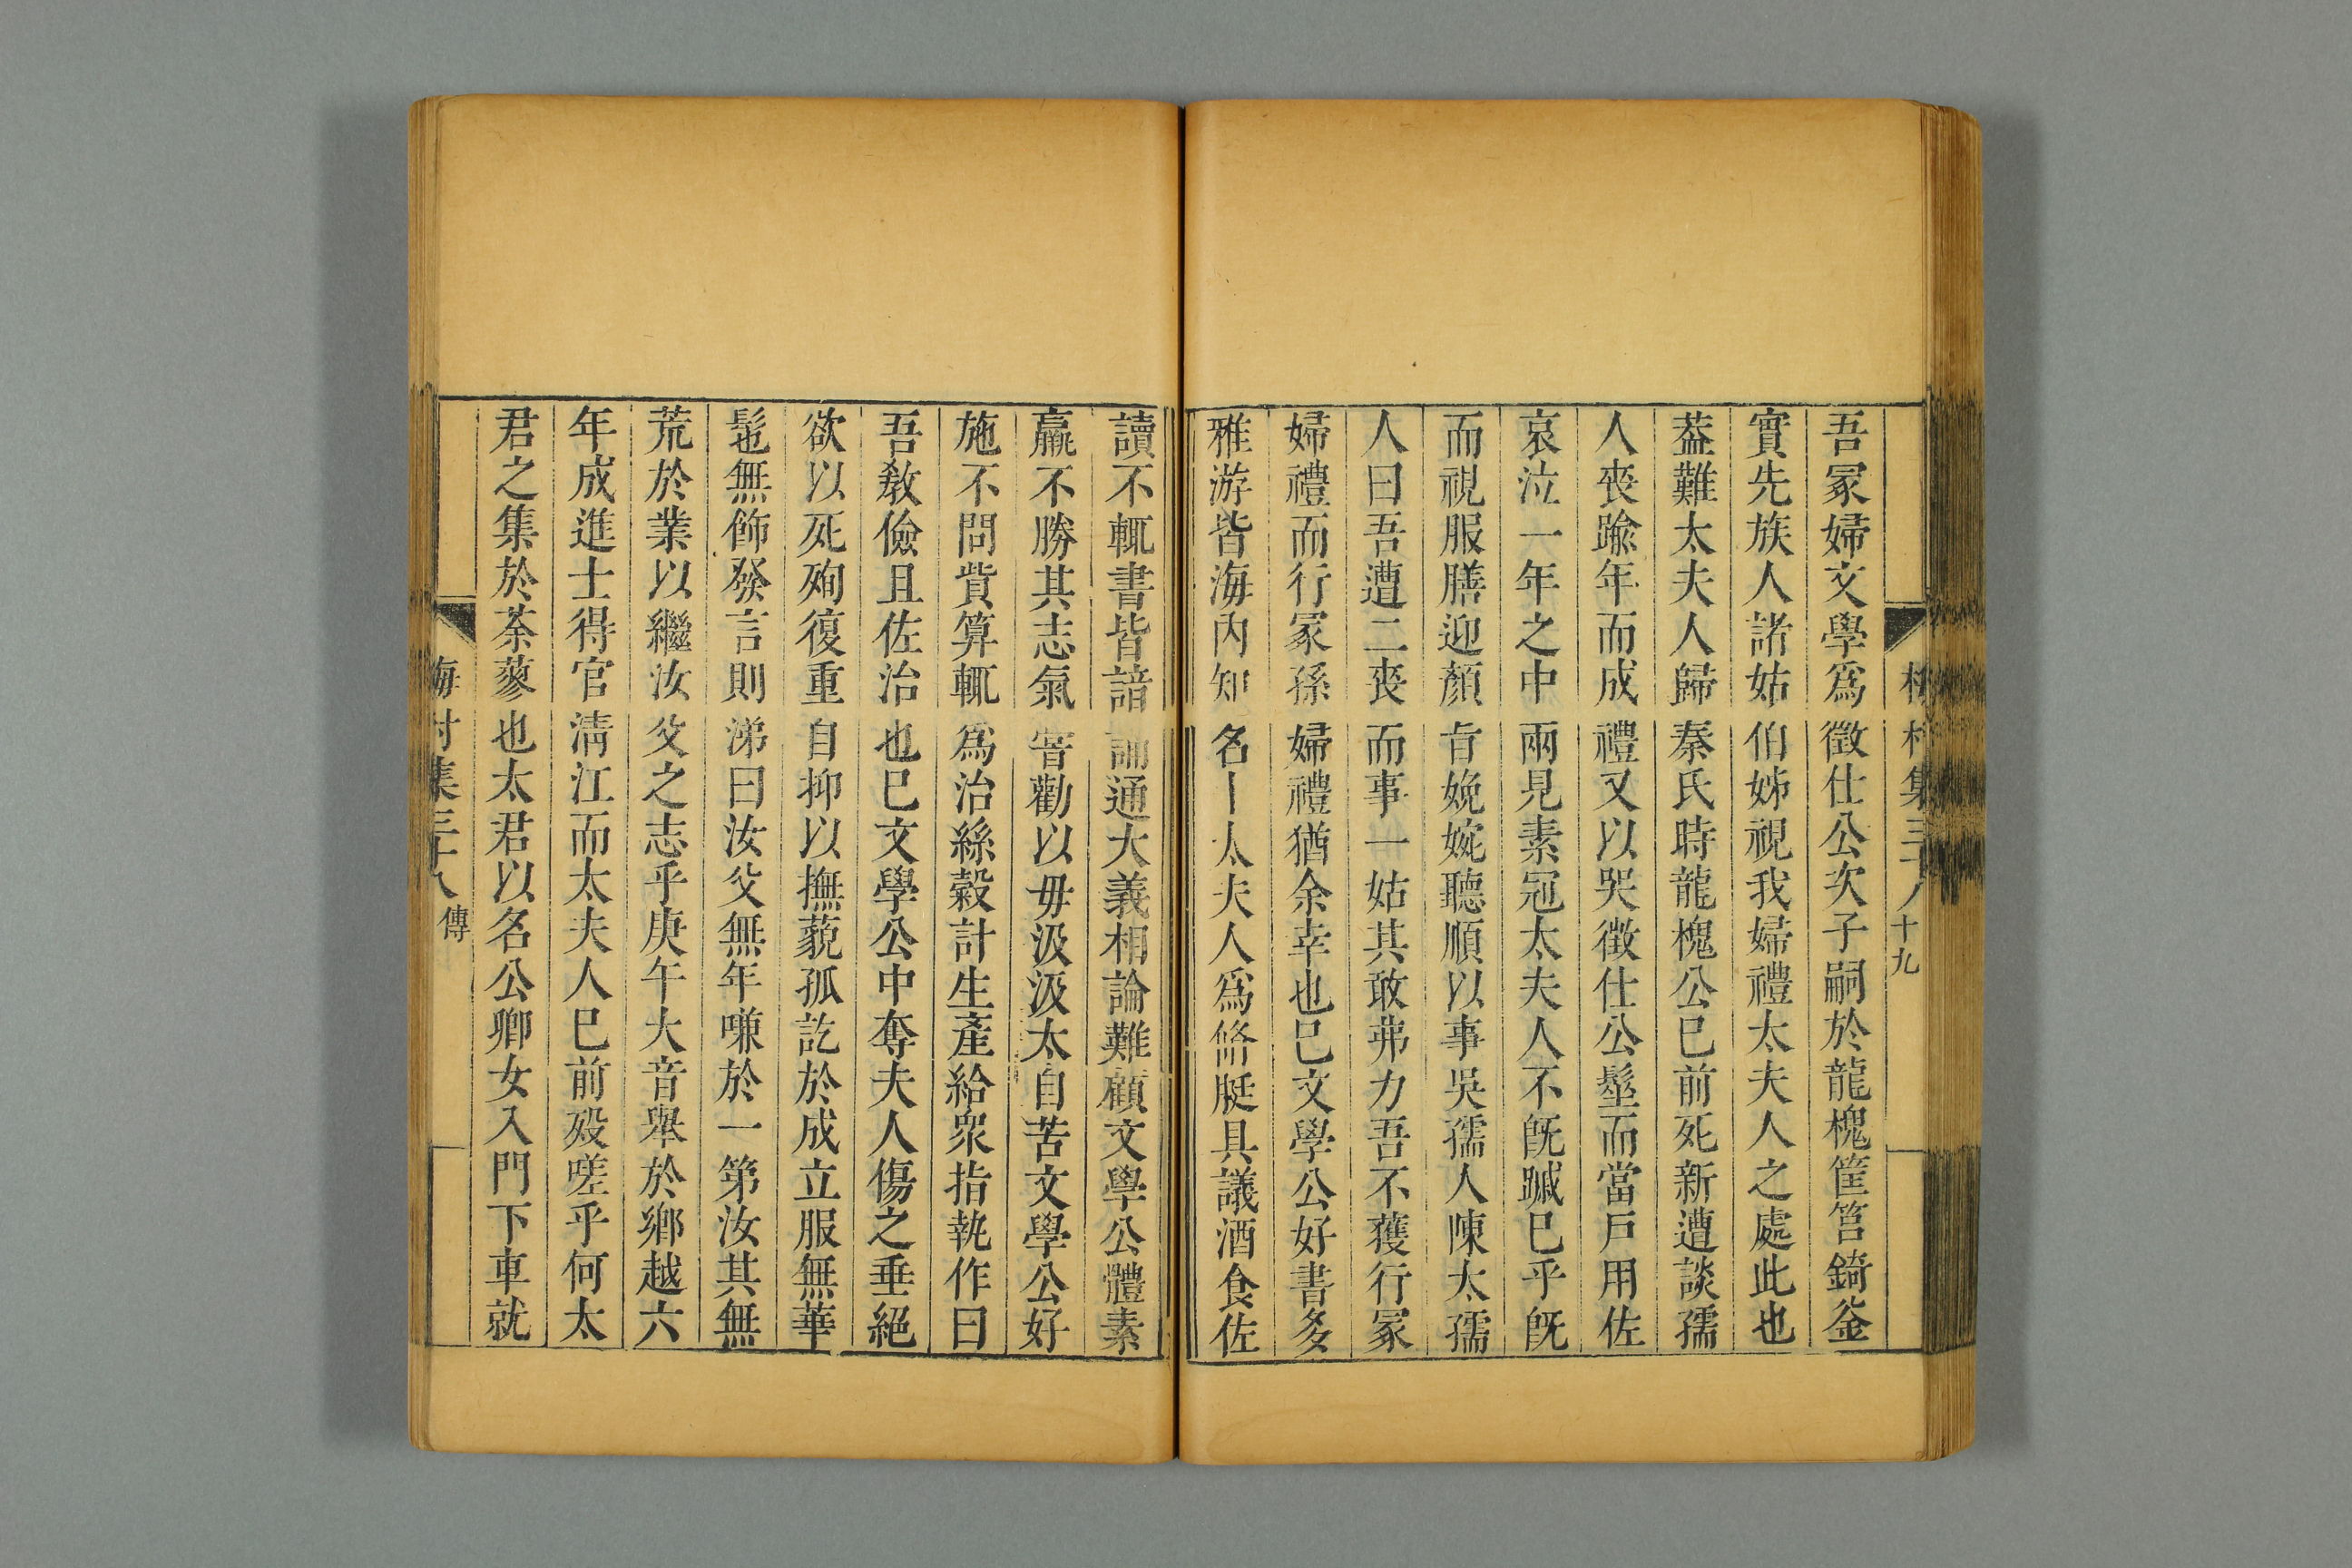 梅村集三十八 十九
吾冢婦文學爲徵仕公次子嗣於龍槐筐筥錡釜
實先族人諸姑伯姊視我婦禮太夫人之處此也
葢難太夫人歸秦氏時龍槐公已前死新遭談孺
人喪踰年而成禮又以哭徵仕公髽而當戸用佐
哀泣一年之中兩見素冠太夫人不旣䠞已乎旣
而視服膳迎顏㫖娩婉聽順以事吳孺人陳太孺
人曰吾遭二喪而事一姑其敢弗力吾不獲行冢
婦禮而行冡孫婦禮猶余幸也已文學公好書多
雅游皆海內知名太夫人爲脩脡具議酒食佐
讀不輒書皆諳誦通大義相論難顧文學公體素
羸不勝其志氣甞勸以毋汲汲太自苦文學公好
施不問貲算輒爲治絲穀計生產給衆指執作曰
吾敎儉且佐治也已文學公中奪夫人傷之垂絕
欲以死殉復重自抑以撫藐孤訖於成立服無華
髢無飾發言則涕曰汝父無年嗛於一第汝其無
荒於業以繼汝父之志乎庚午大音舉於鄉越六
年成進士得官淸江而太夫人已前殁嗟乎何太
君之集於荼蓼也太君以名公卿女入門下車就
梅村集三十八 傳